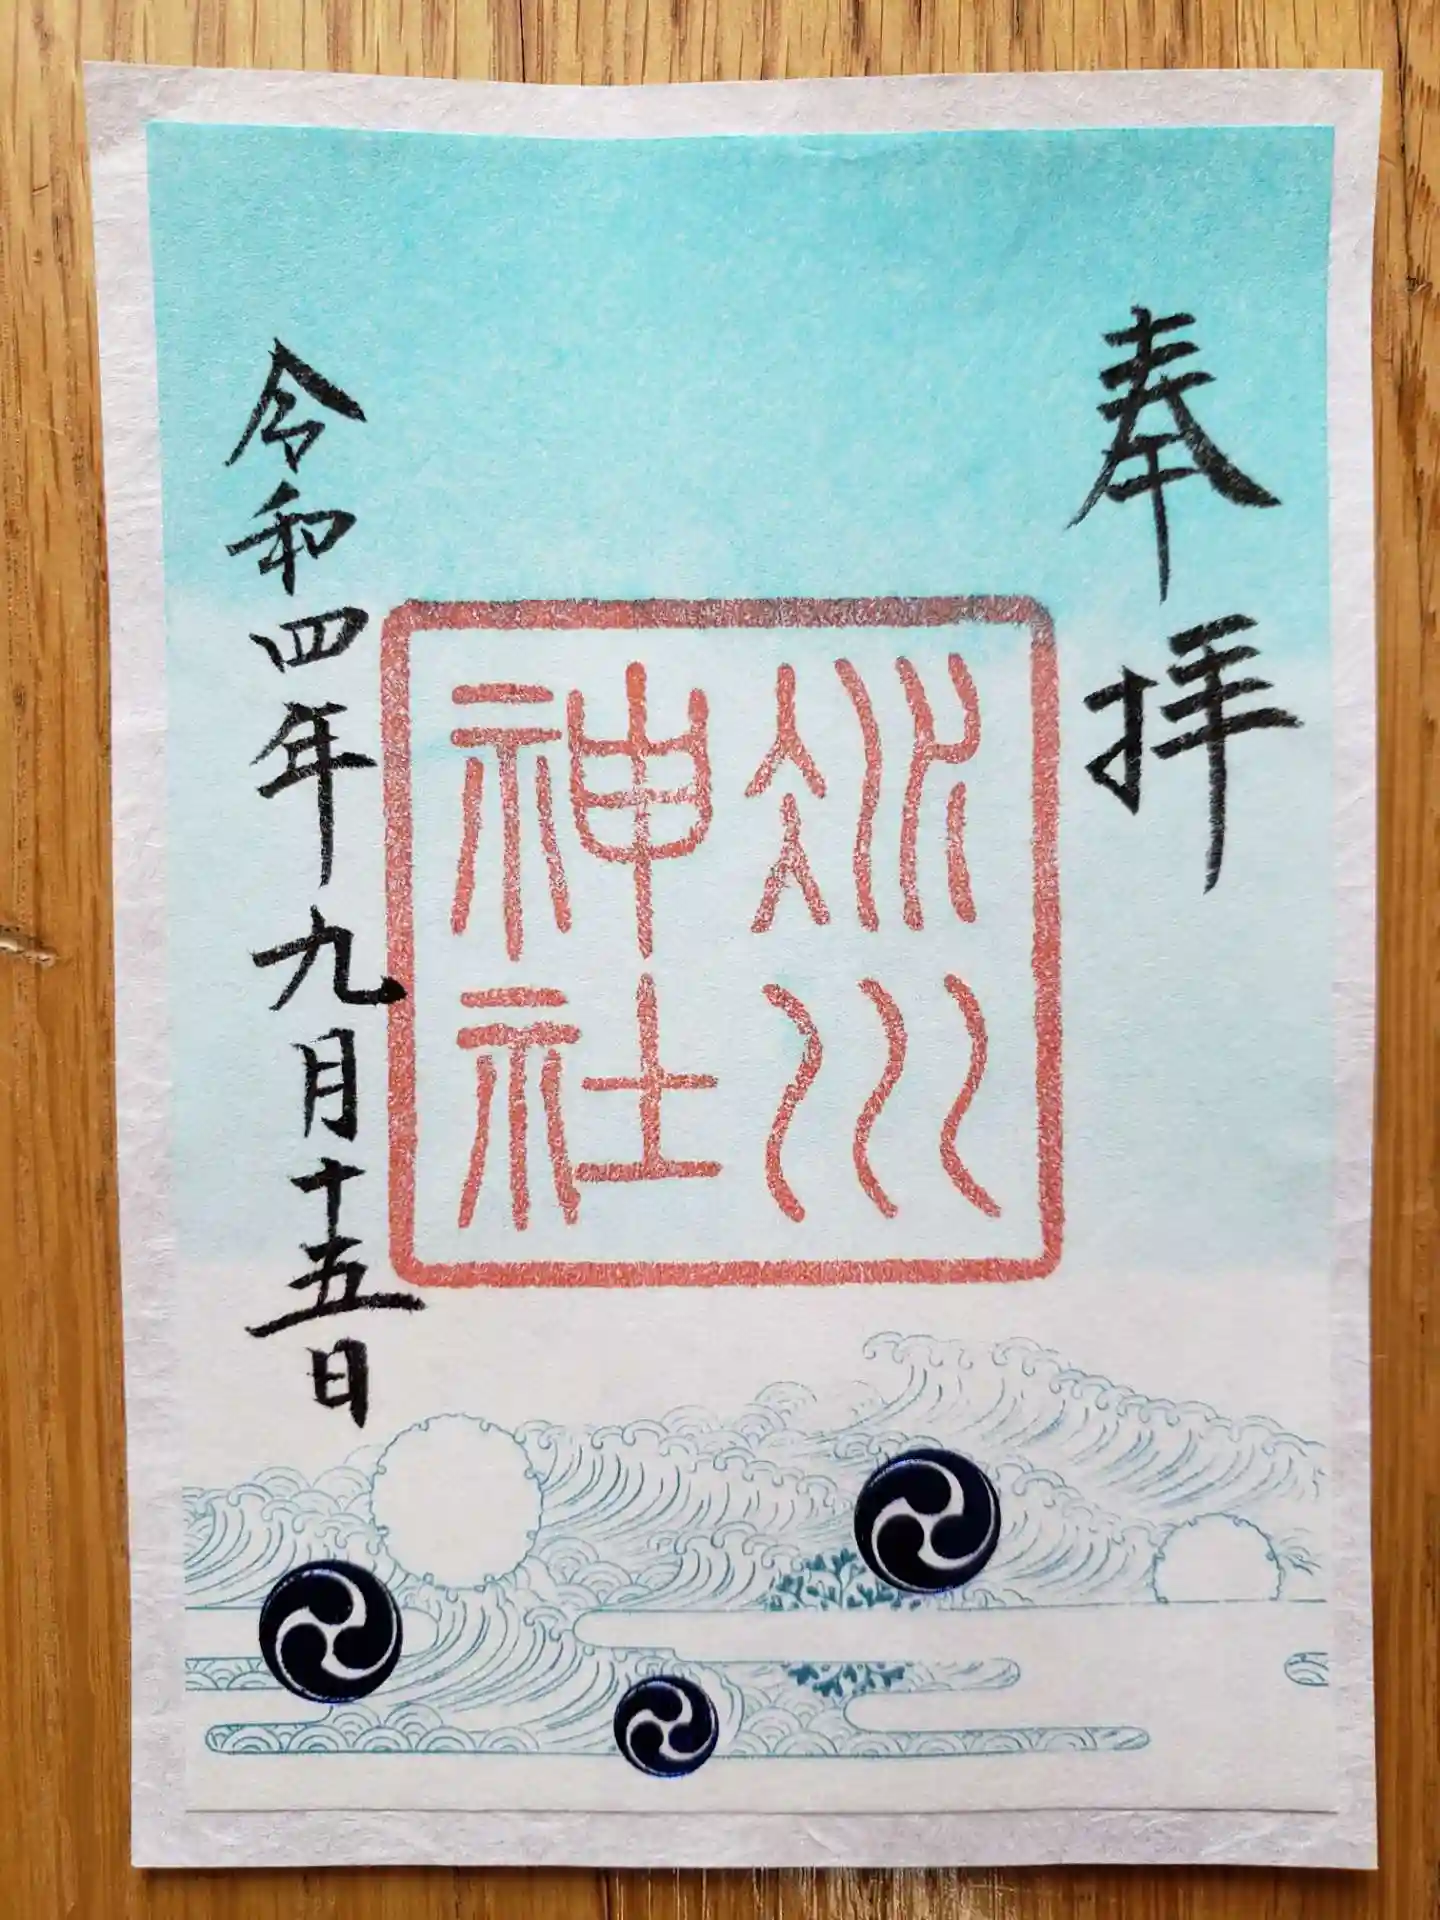 奉拝
氷川
神社
令和四年九月十五日